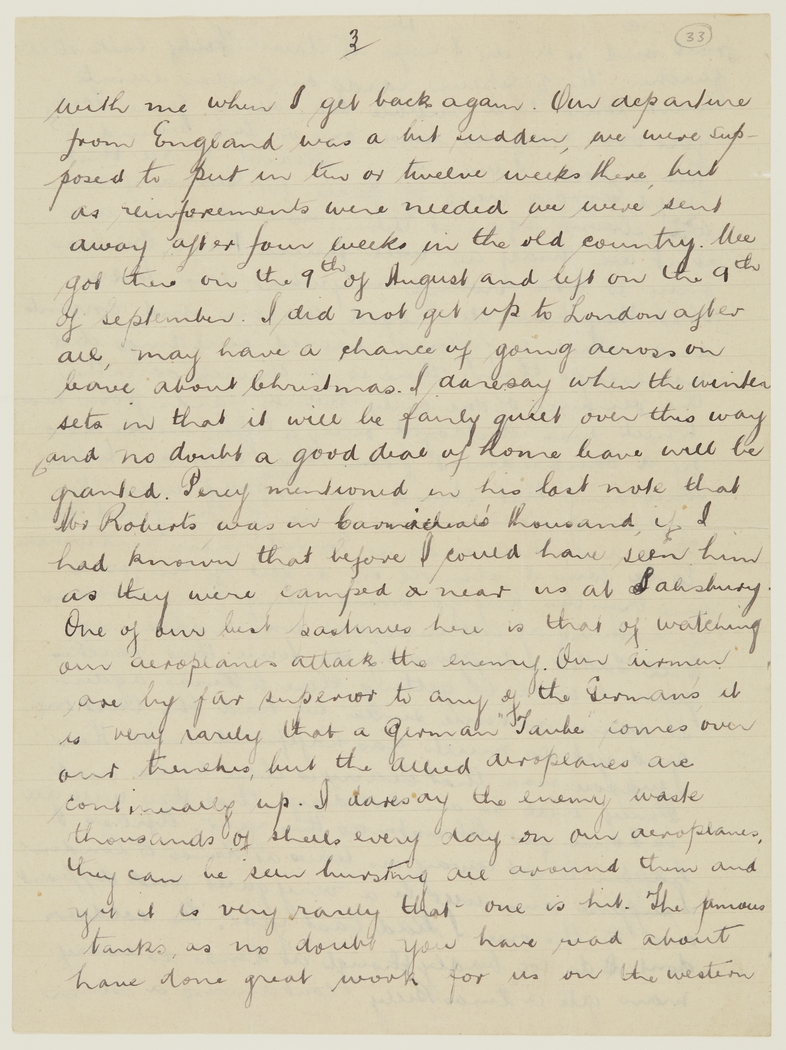 3
33
with me when I get back again. Our departure
from England was a bit sudden, we were sup-
posed to put in ten or twelve weeks there, but
as reinforcements were needed we were sent
away after four weeks in the old country. We
got there on the 9th of August and left on the 9th
of September. I did not get up to London after
all, may have a chance of going across on
leave about Christmas. I daresay when the winter
sets in that it will be fairly quiet over this way
and no doubt a good deal of home leave will be
granted. Percy mentioned in his last note that
Mr Roberts was in Carmichael's thousand, if I
had known that before I could have seen him
as they were camped near us at Salisbury.
One of our best pastimes here is that of watching
our aeroplanes attack the enemy. Our airmen
are by far superior to any of the Germans it
is very rarely that a German "Taube" comes over
our trenches, but the Allied aeroplanes are
continually up. I daresay the enemy waste
thousands of shells every day on our aeroplanes,
they can be seen bursting all around them and
yet it is very rarely that one is hit. The famous
tanks, as no doubt you have read about
have done great work for us on the western